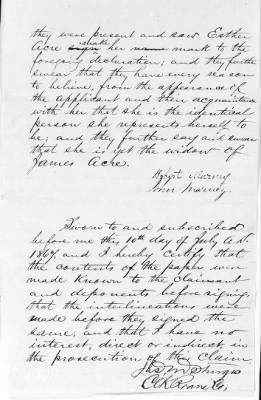 they were present and saw Esther
Acre sign make her name mark to the
foregoing declaration; and they further
swear that they have every reason
to believe, from the appearance of
the applicant and their acquaintance
with her that she is the identical
person she represents herself to
be; and they further say and swear
that she is yet the widow of
James Acre.
John
Sworn to and subscribed
before me this 10th day of July A.D.
1867 and I hereby certify that
the contents of the paper were
made known to the claimant
and deponents before signing,
that the interlineations were
made before they signed the
same, and that I have no
interest, direct or indirect, in
the prosecution of this claim